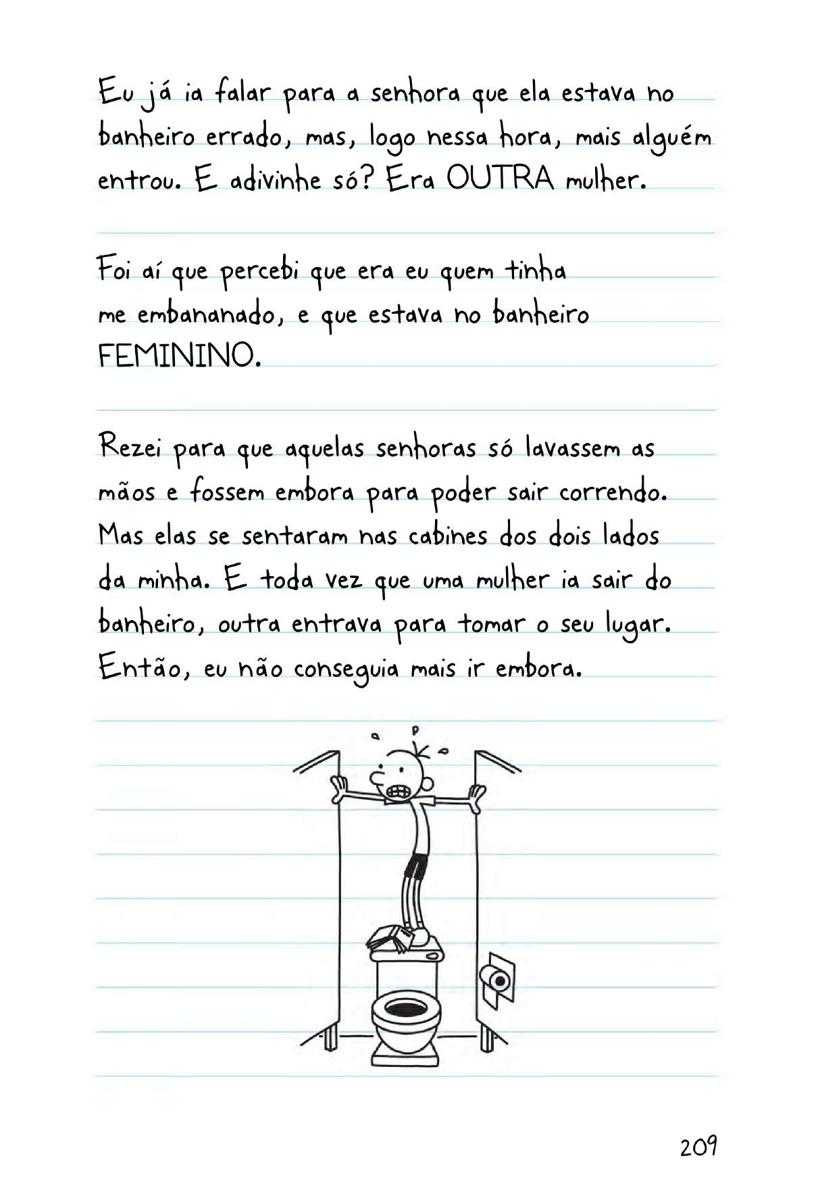 Eu já ia falar para a senhora que ela estava no
banheiro errado, mas, logo nessa hora, mais alguém
entrou. E adivinhe só? Era OUTRA mulher.
Foi aí que percebi que era eu quem tinha
me embananado, e que estava no banheiro
FEMININO.
Rezei para que aquelas senhoras só lavassem as
mãos e fossem embora para poder sair correndo.
Mas elas se sentaram nas cabines dos dois lados
da minha. E toda vez que uma mulher ia sair do
banheiro, outra entrava para tomar o seu lugar.
Então, eu não conseguia mais ir embora.
209